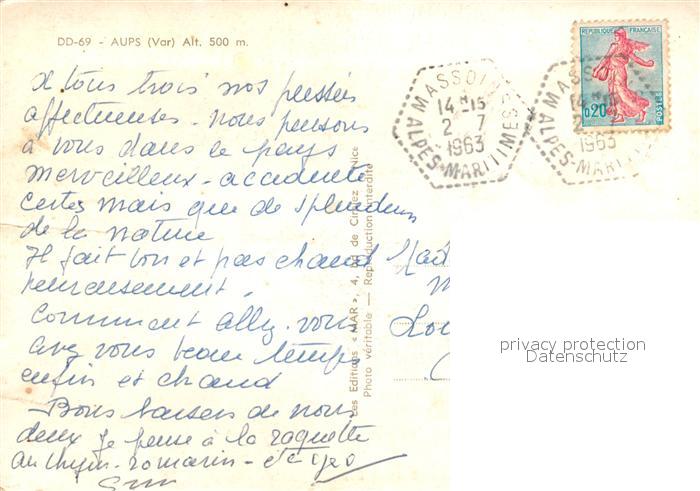 DD-69 - AUPS (Var) Alt. 500 m.
A tous trois nos pensées
affectueuses - nous pensons
à vous dans le pays
merveilleux - accidenté
certes mais que de splendeurs
de la nature
Il fait bon et pas chaud
heureusement.
Comment allez-vous
avez vous beau temps
enfin et chaud
Bons baisers de nous
deux je pense à la raquette
au thym - romarin -
Les Editions « MAR », 4, de Nice
Photo véritable — Reproduction interdite
MASSOI
14H15
2 7
1963
ALPES-MARITIMES
MASSO
14H
2 7
1963
ALPES-MARITIM
REPUBLIQUE FRANÇAISE
0,20
POSTES
privacy protection
Datenschutz